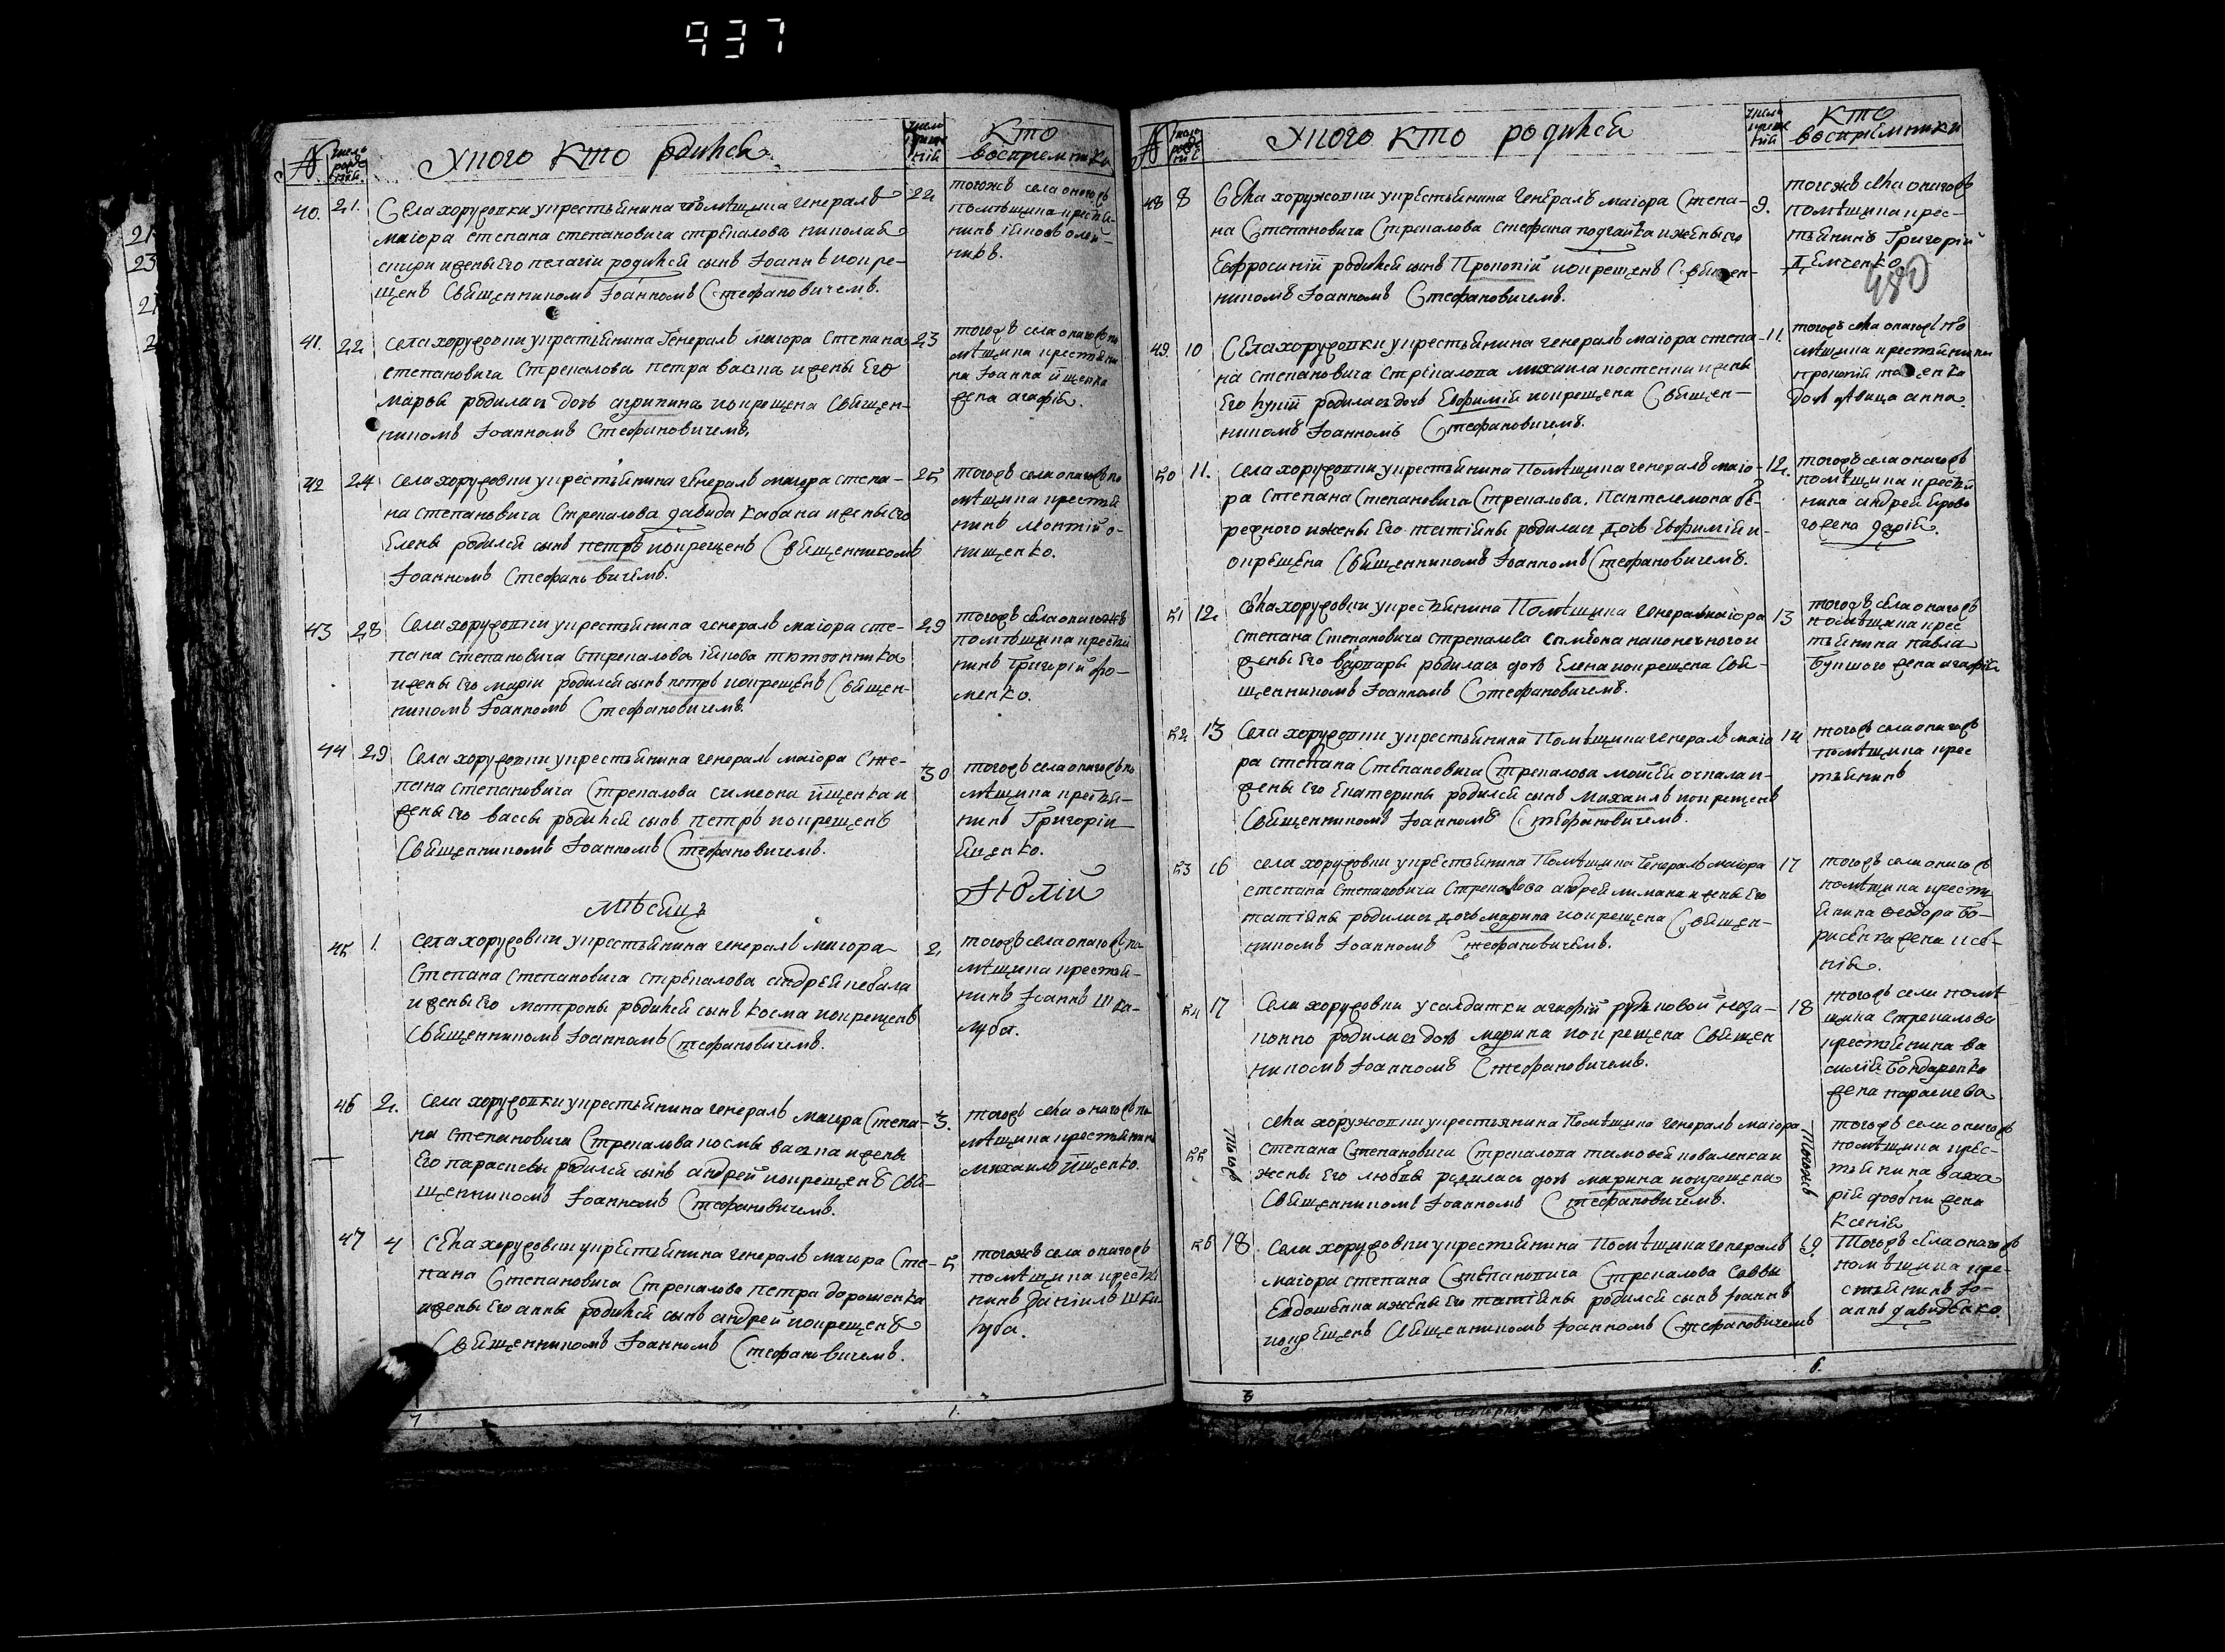 937
№ число рожденій У кого кто родился число крещеній Кто воспріемники
40. 21. Села хоружовки укрестьянина помѣщика генералъ 22
маіора степана степановича стрекалова николая
спири иженыего пелагіи родился сынъ Іоаннъ икре-
щенъ Священникомъ Іоанномъ Стефановичемъ.
тогожъ села оногожъ
помѣщика крестья-
нинъ
никъ.
41. 22 села хоружовки укрестьянина Генералъ маіора Степана 23
степановича Стрекалова петра васка ижены Его
марфы родилась дочь агрипина иокрещена Священ-
никомъ Іоанномъ Стефановичемъ.
тогожъ села оногожъ по
мѣщика крестьяни
на Іоанна йщенка
жена агафія.
42 24 села хоружовки укрестьянина генералъ маіора степа- 25
на степановича Стрекалова давида кабана иженыего
Елены родился сынъ петръ иокрещенъ Священникомъ
Іоанномъ Стефановичемъ.
тогожъ села оногожъ по
мѣщика крестья
нинъ Монтій о-
нищенко.
43 28 Села хоружовки укрестьянина генералъ маіора сте- 29
пана степановича Стрекалова іякова тютюнника
ижены его маріи родился сынъ петръ иокрещенъ Священ-
никомъ Іоанномъ Стефановичемъ.
тогожъ села оногожъ
помѣщика крестья
нинъ Григорій фо-
менко.
44 29 Села хоружовки укрестьянина генералъ маіора Сте- 30
пана степановича Стрекалова симеона йщенка и
жены его вассы родился сынъ петръ иокрещенъ
Священникомъ Іоанномъ Стефановичемъ.
тогожъ села оногожъ по
мѣщика крестья-
нинъ Григорій
йщенко.
мѣсяцъ Іюлій
45 1. села хоружовки укрестьянина генералъ маіора 2.
Степана степановича стрекалова андрея кебала
ижены его матроны родился сынъ косма иокрещенъ
Священникомъ Іоанномъ Стефановичемъ.
тогожъ села оногожъ по-
мѣщика крестья-
нинъ Іоаннъ Шка-
луба.
46 2. села хоружовки укрестьянина генералъ маіора Степа- 3.
на степановича Стрекалова космы васка ижены
Его параскевы родился сынъ андрей иокрещенъ Свя-
щенникомъ Іоанномъ Стефановичемъ.
тогожъ села оногожъ по
мѣщика крестьянинъ
михаилъ йщенко.
47 4 Села хоружовки укрестьянина генералъ маіора Сте- 5
пана Степановича Стрекалова петра дорошенка
ижены Его анны родился сынъ андрей иокрещенъ
Священникомъ Іоанномъ Стефановичемъ.
тогожъ села оногожъ
помѣщика крестья
нинъ Даніилъ Шка
луба.
7 1.
№ число рожденій У кого кто родился число крещеній Кто воспріемники
480
48 8 Села хоружовки укрестьянина Генералъ маіора Степа- 9.
на Степановича Стрекалова стефана подгайка иженыего
Евфросиніи родился сынъ Прокопій иокрещенъ Священ-
никомъ Іоанномъ Стефановичемъ.
тогожъ села оногожъ
помѣщика крес-
тьянинъ Григорій
Демченко
49. 10 Села хоружовки укрестьянина генералъ маіора степа- 11.
на степановича Стрекалова михаила костенки ижены
Его родилась дочь Евфимія иокрещена Священ-
никомъ Іоанномъ Стефановичемъ.
тогожъ села оногожъ по
мѣщика крестьянина
прокопія
дочь дѣвица анна
50 11. Села хоружовки укрестьянина Помѣщика генералъ маіо- 12.
ра Степана Степановича Стрекалова. Пантелемона бе-
режного ижены Его татіяны родилась дочь Евфимія и-
окрещена Священникомъ Іоанномъ Стефановичемъ.
тогожъ села оногожъ
помѣщика крестья
нина андрея
жена дарія.
51 12. Села хоружовки укрестьянина Помѣщика генералъ маіора 13
степана Степановича стрекалова симеона наконечного и
жены Его варвары родилась дочь Елена иокрещена Свя-
щенникомъ Іоанномъ Стефановичемъ.
тогожъ села оногожъ
помѣщика крес
тьянина павла
жена агафія
52 13 Села хоружовки укрестьянина Помѣщика генералъ маіо 14
ра степана Степановича Стрекалова моисея очкала и-
жены Его Екатерины родился сынъ михаилъ иокрещенъ
Священникомъ Іоанномъ Стефановичемъ.
тогожъ села оногожъ
помѣщика крес
тьянинъ
53 16 села хоружовки укрестьянина Помѣщика Генералъ маіора 17
степана Степановича Стрекалова андрея лимана ижены Его
татіяны родилась дочь марина иокрещена Священ-
никомъ Іоанномъ Стефановичемъ.
тогожъ села оногожъ
помѣщика кресть
янина Феодора Бо-
рисенка жена ксе-
нія.
54 17 Села хоружовки усалдатки агафіи рудковой неза-
конно родилась дочь марина иокрещена Священ 18
никомъ Іоанномъ Стефановичемъ.
тогожъ села помѣ
щика Стрекалова
крестьянина ва
силія Бондаренка
жена параскева
55 тогожъ села хоружовки укрестьянина Помѣщика генералъ маіора тогожъ
степана Степановича Стрекалова тимофея коваленка и
жены Его любвы родилась дочь марина иокрещена
Священникомъ Іоанномъ Стефановичемъ.
тогожъ села оногожъ
помѣщика крес-
тьянина заха
рія жена
Ксенія
56 18 Села хоружовки укрестьянина Помѣщика генералъ 19.
маіора степана Степановича Стрекалова Саввы
Евдошенка ижены Его татіяны родился сынъ Іоаннъ
иокрещенъ Священникомъ Іоанномъ Стефановичемъ
Тогожъ села оногожъ
помѣщика кре-
стьянинъ Іо-
аннъ давиденко.
6.